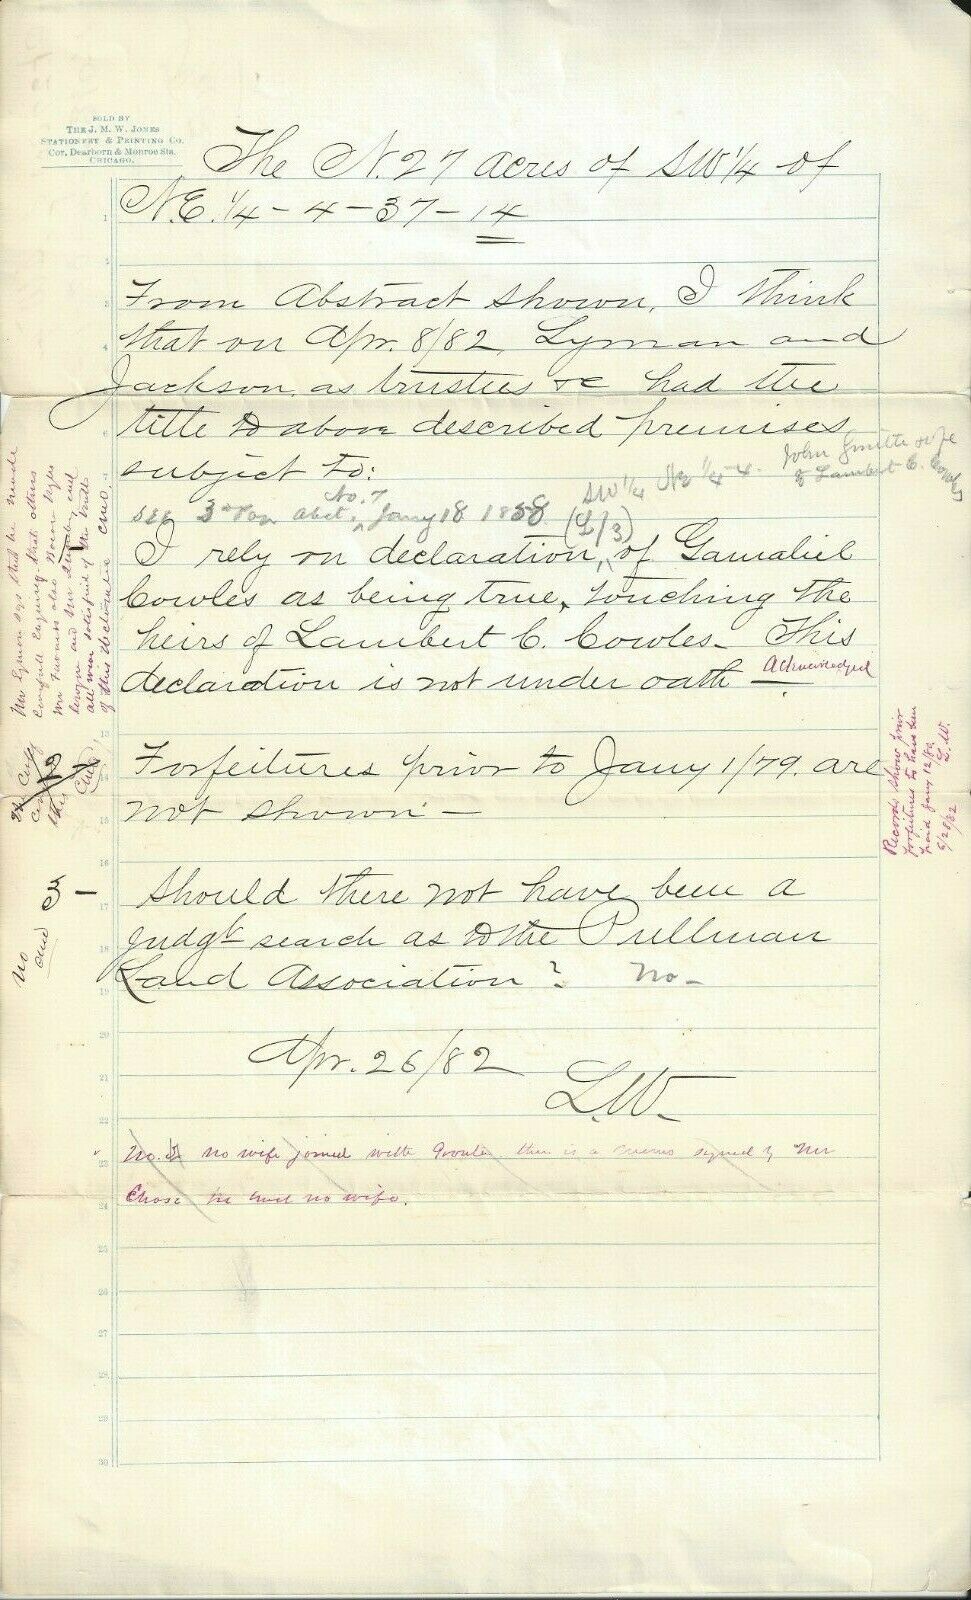 SOLD BY
THE J. M. W. JONES
STATIONERY & PRINTING CO.
Cor. Dearborn & Monroe Sts.
CHICAGO.
The N. 27 acres of SW 1/4 of
N.E. 1/4 - 4 - 37 - 14
From Abstract shown, I think
that on Apr. 8/82, Lyman and
Jackson as trustees &c had the
title to above described premises
subject to:
John Smith wife
of Lambert C. Cowles
SW 1/4 NE 1/4 - 4.
No. 7
see 3rd on abst. Jany 18 1858
(2/3)
I rely on declaration, of Gamaliel
Cowles as being true, touching the
heirs of Lambert C. Cowles - This
declaration is not under oath Acknowledged
Forfeitures prior to Jany 1/79. are
not shown -
Should there not have been a
judgt search as to the Pullman
Land Association? No -
Apr. 26/82
L.W.
No. no wife joined with there is a signed by Mr
Chase he had no wife.
Mr Lyman says that he made
careful enquiry that others
Mr also
and Mr and
all were satisfied of the truth
of this declaration
3 -
no
Records show prior
forfeitures to have been
paid Jany 12/80
L.W.
5/28/82